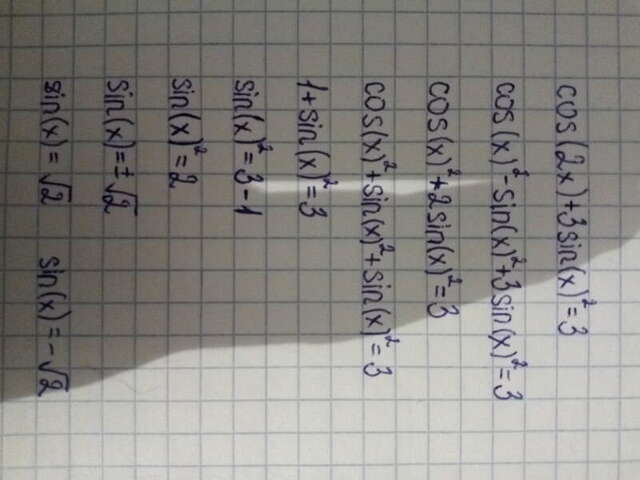 cos(2x)+3sin(x)²=3
cos(x)²-sin(x)²+3sin(x)²=3
cos(x)²+2sin(x)²=3
cos(x)²+sin(x)²+sin(x)²=3
1+sin(x)²=3
sin(x)²=3-1
sin(x)²=2
sin(x)=±√2
sin(x)=√2 sin(x)=-√2